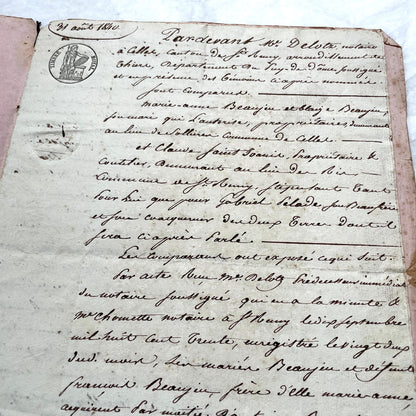 31 août 1840
Pardevant Me Delotz, notaire
à Celles, canton de St Remy, arrondissement de
Thiers, Département du Puy-de-Dôme soussigné
et en présence des témoins ci après nommés
sont comparus
marie-anne Beaujeu et Beaujeu,
son mari qui l'autorise, propriétaires, demeurant
au lieu de commune de Celles
et Claude Saint Joanis, propriétaire &
coutelier, demeurant au lieu des
commune de St Remy stipulant tant
pour lui que pour Gabriel Pelade son Beaufrère
et son coacquéreur des deux terres dont il
sera ci après parlé
Les comparants ont exposé ce qui suit:
Par acte Reçu Me Delotz prédécesseur immédiat
du notaire soussigné qui en a la minute &
Me Chomette notaire à St Remy le dix septembre
mil huit cent trente, enregistré le vingt deux
dud. mois, Les mariés Beaujeu et défunt
françois Beaujeu frère d'elle marie anne
acquirent par moitié